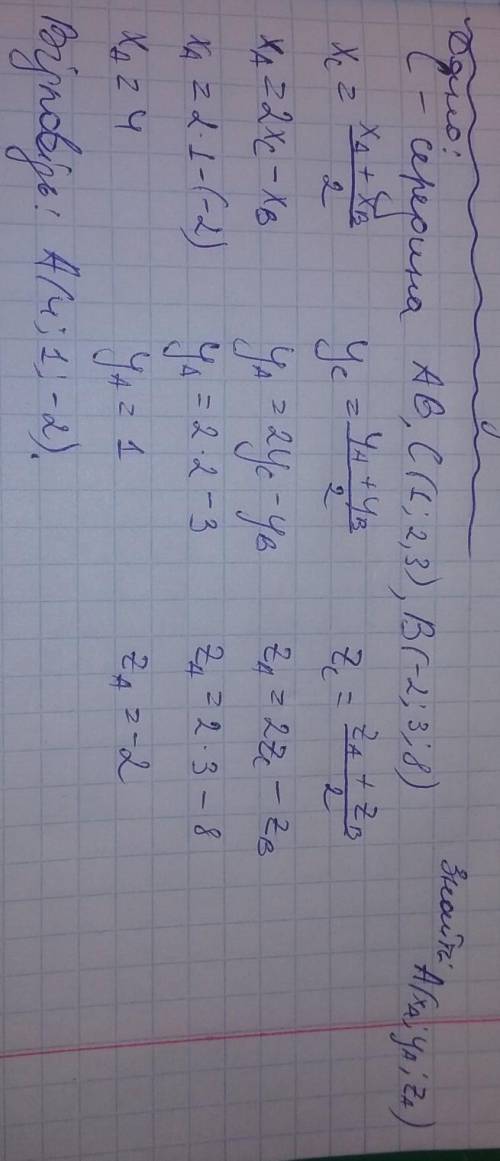 Дано: Знайти: A(x_A; y_A; z_A)
C – середина AB, C(1; 2, 3), B(-2; 3; 8)
x_C = (x_A + x_B)/2 y_C = (y_A + y_B)/2 z_C = (z_A + z_B)/2
x_A = 2x_C - x_B y_A = 2y_C - y_B z_A = 2z_C - z_B
x_A = 2·1-(-2) y_A = 2·2-3 z_A = 2·3-8
x_A = 4 y_A = 1 z_A = -2
Відповідь: A(4; 1; -2).